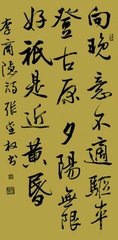 向晚意不適驅車
登古原夕陽無限
好祇是近黃昏
李商隱詩張書